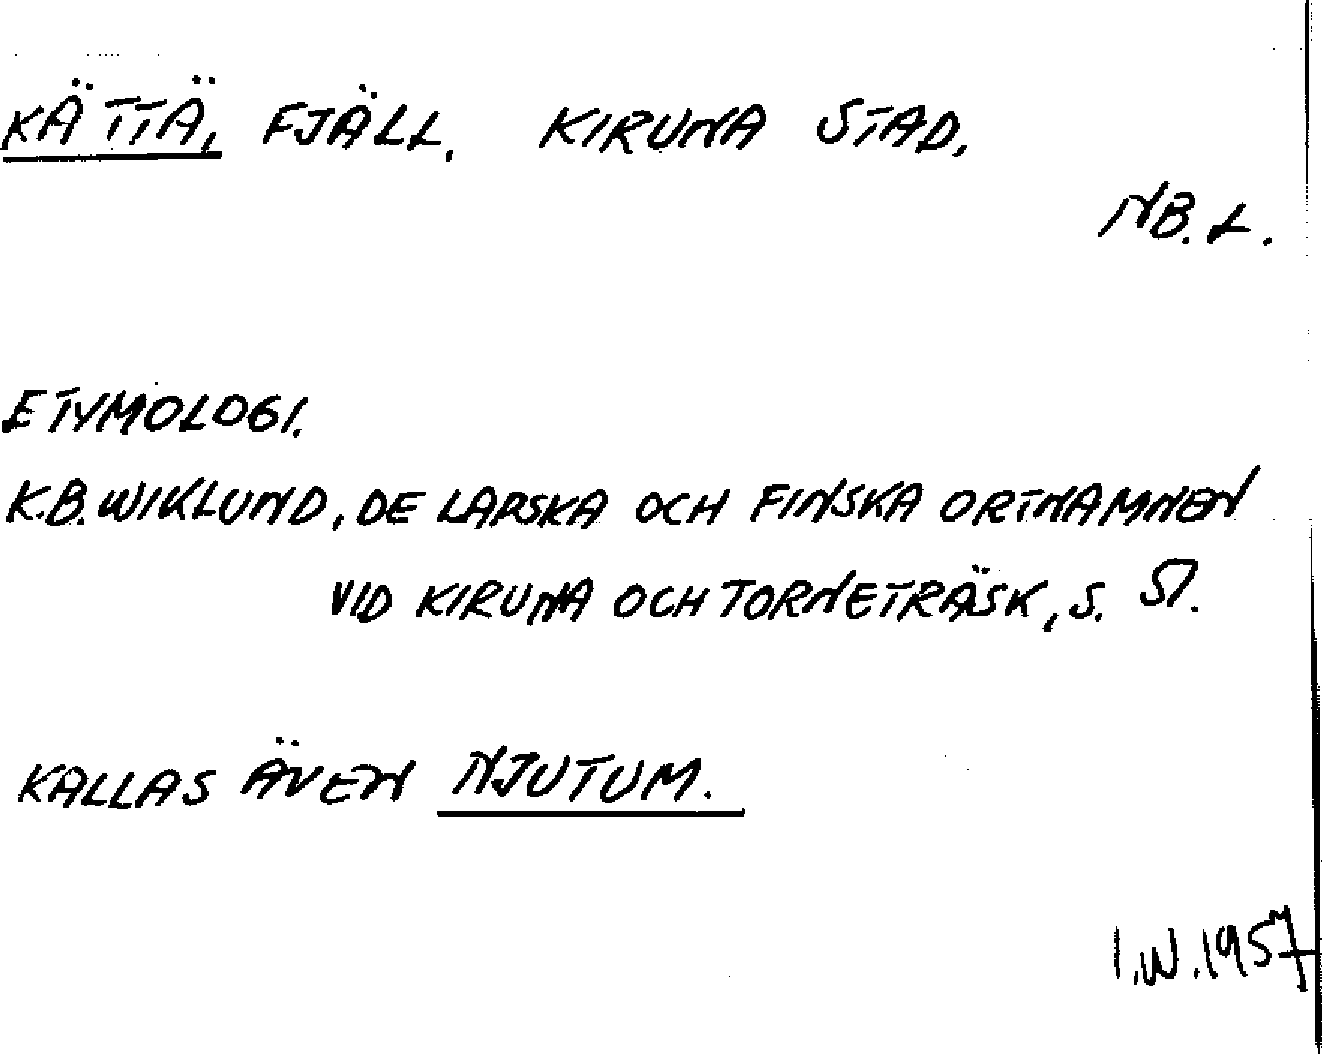 KÄTTÄ, FJÄLL. KIRUNA STAD,
NB. L.
ETYMOLOGI.
K.B. WIKLUND, DE LAPSKA OCH FINSKA ORTNAMNEN
VID KIRUNA OCH TORNETRÄSK, S.
KALLAS ÄVEN NJUTUM.
I.W. 1957